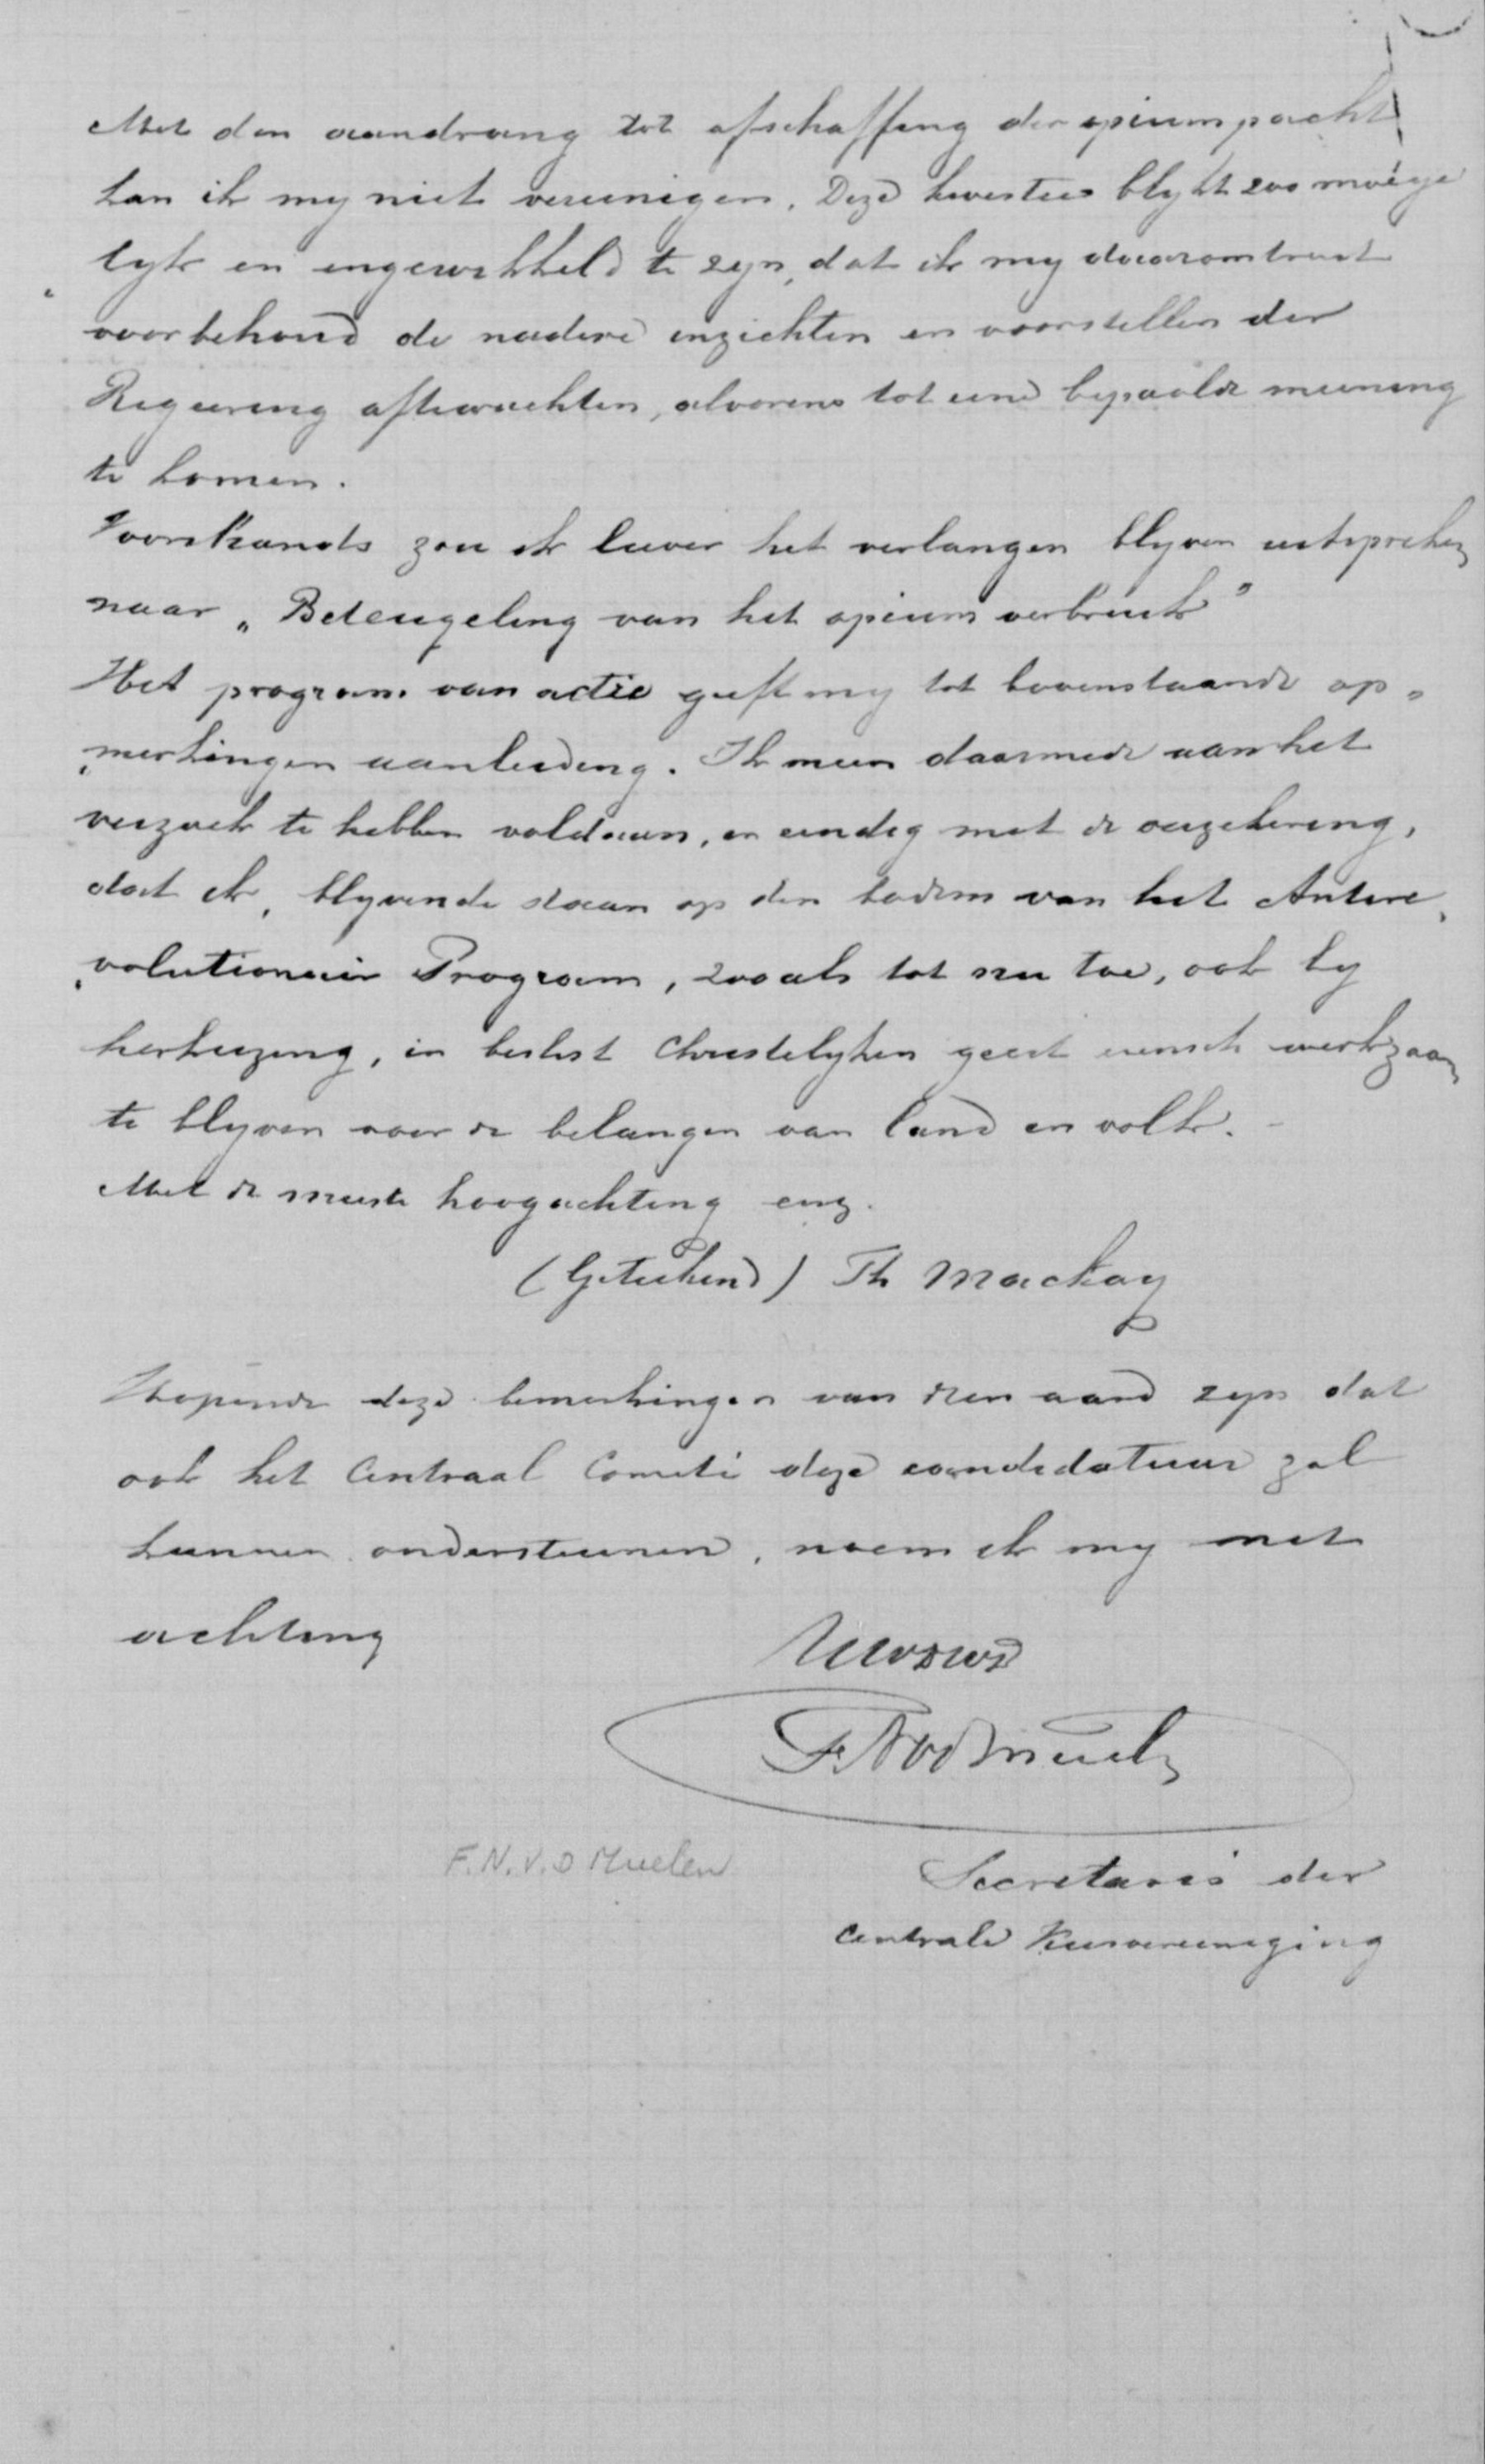 Met den aandrang tot afschaffing der opiumpacht
kan ik my niet vereenigen. Deze kwestie blykt zoo moeije
lyk en ingewikkeld te zyn, dat ik my daaromtrent
voorbehoud de nadere inzichten en voorstellen der
Regeering aftewachten, alvorens tot eene bepaalde meening
te komen.
Voorshands zou ik liever het verlangen blyven uitspreken
naar „Beteugeling van het opium verbruik"
Het program van actie geeft my tot bovenstaande op„
„merkingen aanleiding. Ik meen daarmede aan het
verzoek te hebben voldaan, en eindig met de verzekering,
dat ik, blyvende staan op den bodem van het Antire„
„volutionair Program, zooals tot nu toe, ook by
herkiezing, in beslist Christelyken geest wensch werkzaam
te blyven voor de belangen van land en volk. -
Met de meeste hoogachting enz.
(Geteekend) Th Mackay
Hopende deze bemerkingen van dien aard zyn dat
ook het Centraal Comité deze candidatuur zal
kunnen ondersteunen, noem ik my met
achting
F N v d Muelen
F.N.V.D Muelen
Secretaris der
Centrale Kiesvereeniging